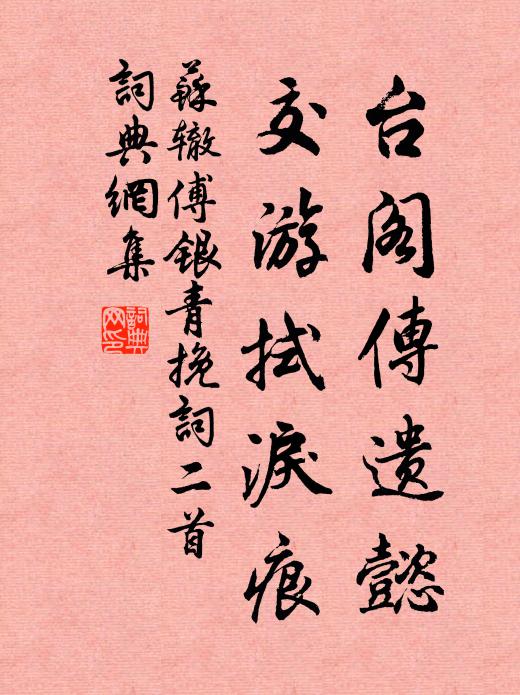 台阁傳遗懿
交游拭淚痕
蘇辙傅银青挽詞二首
詞典網集
詞典网印